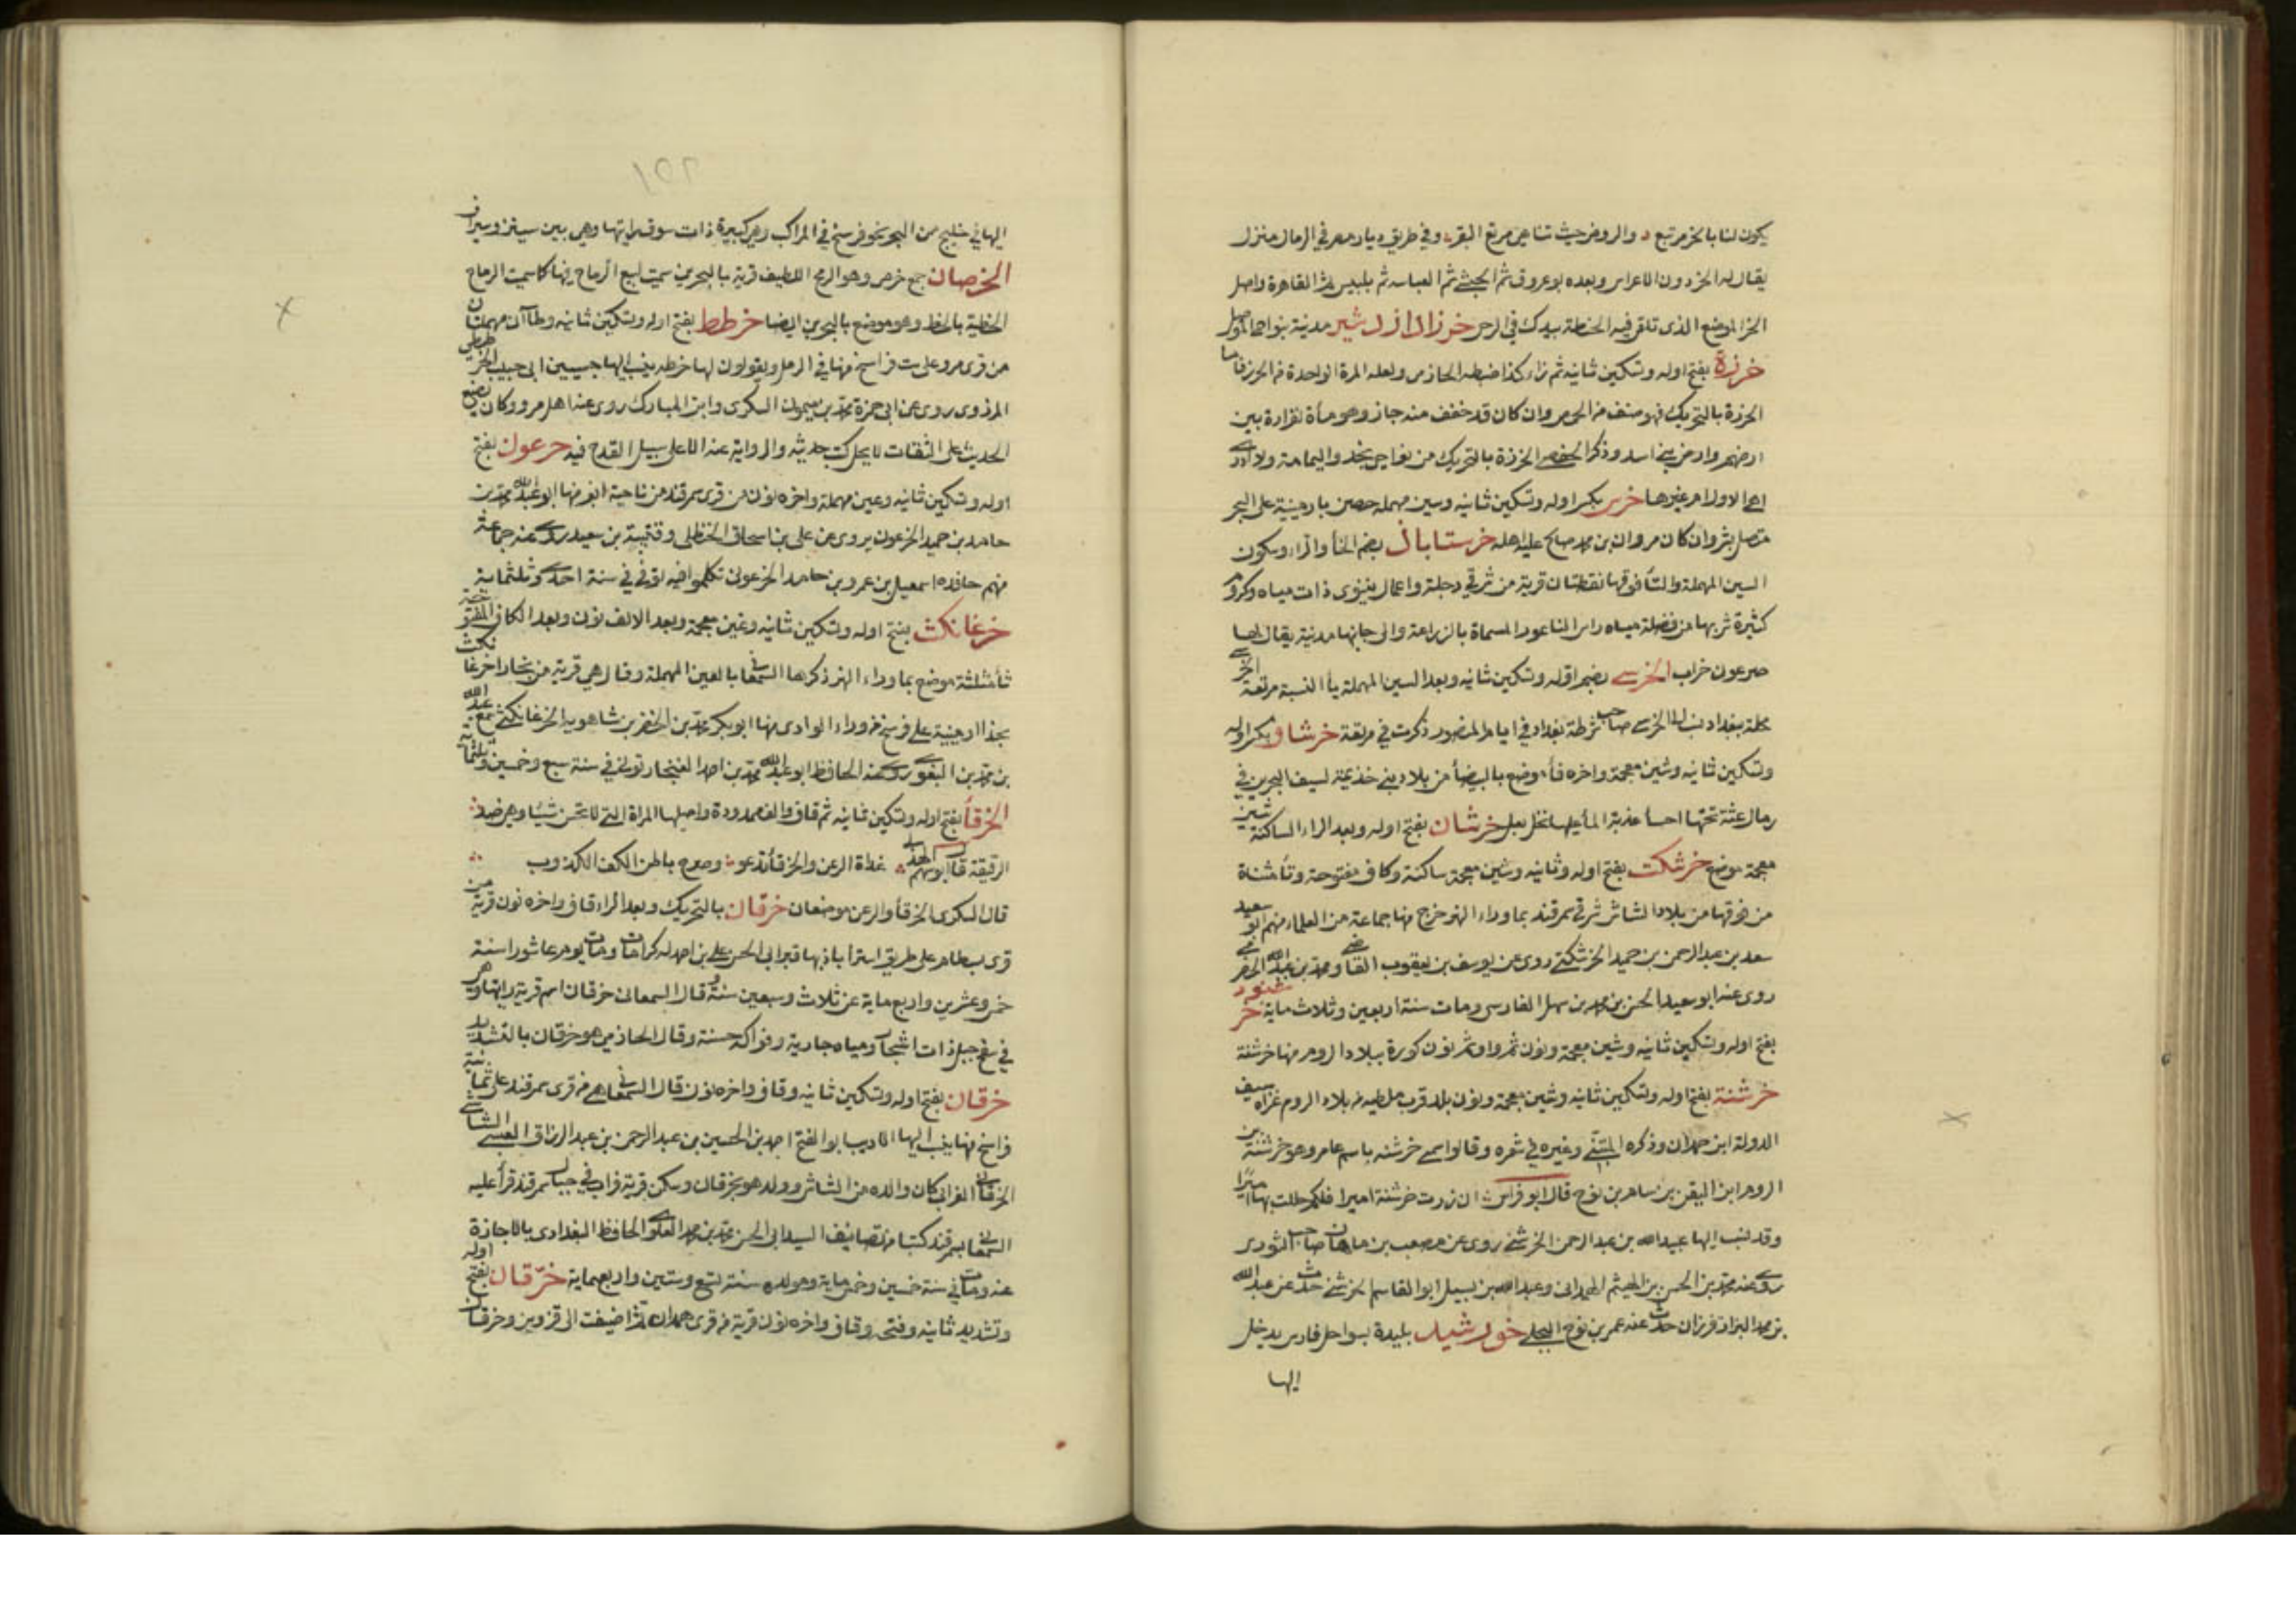 يكون لنا بالخر مرتبع والروض حيث تناهى مرتع البقر وفي طريق ديار مصر في الرمال منزل
يقال له الخر دون الاعراس وبعده بوعروق ثم الخشبي ثم العباسه ثم بلبيس ثم القاهرة واصل
الخر الموضع الذي تلقى فيه الحنطة بيدك في الرحى خرزاد ازدشير مدينة بنواحي الموصل
خرزة بفتح اوله وتسكين ثانيه ثم زاء كذا ضبطه الحازمي ولعله المرة الواحدة من الخرز فاما
الخرزة بالتحريك فهو صنف من الحمض وان كان قد خفف منه جاز وهو ماءة لفزارة بين
ارضهم وارض بني اسد وذكر الحفصي الخرزة بالتحريك من نواحي نجد واليمامة ولا ادري
اهي الاولى ام غيرها خرس بكسر اوله وتسكين ثانيه وسين مهمله حصن بارمينية على البحر
متصل بشروان كان مروان بن محمد صالح عليه اهله خرستاباذ بضم الخاء والراء وسكون
السين المهملة والتاء فوقها نقطتان قرية من شرقي دجلة واعمال نينوى ذات مياه وكروم
كثيرة شربها من فضلة مياه راس الناعور المسماة بالزراعة والى جانبها مدينة يقال لها
صرعون خراب الخرسي بضم اوله وتسكين ثانيه وبعد السين المهملة ياء النسبة مربعة الخرسي
محلة ببغداد نسب الى الخرسي صاحب شرطة بغداد في ايام المنصور ذكرت في مربعة خرشاف بكسر اوله
وتسكين ثانيه وشين معجمة واخره فاء موضع بالبيضاء من بلاد بني خذيمة لسيف البحرين في
رمال عثة تحتها احساء عذبة الماء عليها نخل بعل خرشان بفتح اوله وبعد الراء الساكنة شين
معجمة موضع خرشكت بفتح اوله وثانيه وشين معجمة ساكنة وكاف مفتوحة وتاء مثناة
من فوقها من بلاد الشاش شرقي سمرقند بما وراء النهر خرج منها جماعة من العلماء منهم ابو سعيد
سعد بن عبد الرحمن بن حميد الخرشكتي روى عن يوسف بن يعقوب القاضي ومحمد بن عبد الله الحضرمي
روى عنه ابو سعيد الحسن بن محمد بن سهل الفارسي ومات سنة اربعين وثلاث ماية خرشنون
بفتح اوله وتسكين ثانيه وشين معجمة ونون ثم واو ثم نون كورة ببلاد الروم منها خرشنة
خرشنة بفتح اوله وتسكين ثانيه وشين معجمة ونون بلد قرب ملطيه من بلاد الروم غزاه سيف
الدولة ابن حمدان وذكره المتنبي وغيره في شعره وقالوا سمي خرشنه باسم عامره وهو خرشنة بن
الروم ابن اليقن بن سام بن نوح قال ابو فراس ان زرت خرشنة اسيرا فلكم حللت بها اميرا
وقد نسب اليها عبيد الله بن عبد الرحمن الخرشني روى عن مصعب بن ماهان صاحب الثوري
روى عنه محمد بن الحسن بن الهيثم الهمداني وعبد الله بن بسيل ابو القاسم الخرشني حدث عن عبد الله
بن محمد البزاز فرزان حدث عنه عمر بن نوح البجلي خورشيد بليدة بسواحل فارس يدخل
اليها
اليها في خليج من البحر نحو فرسخ في المراكب وهي كبيرة ذات سوق رايتها وهي بين سينيز وسيراف
الخرصان جمع خرص وهو الرمح اللطيف قرية بالبحرين سميت لبيع الرماح فيها كما سميت الرماح
الخطية بالخط وهو موضع بالبحرين ايضا خرطط بفتح اوله وتسكين ثانيه وطاآن مهملتان
من قرى مرو على ست فراسخ منها في الرمل ويقولون لها خرطه ينسب اليها حبيب بن ابي حبيب الخرططي
المروزي روى عن ابي حمزة محمد بن ميمون السكري وابن المبارك روى عنه اهل مرو وكان يضع
الحديث على الثقات لا يحل كتب حديثه والرواية عنه الا على سبيل القدح فيه خرعون بفتح
اوله وتسكين ثانيه وعين مهملة واخره نون من قرى سمرقند من ناحية ابغر منها ابو عبد الله محمد بن
حامد بن حميد الخرعوني يروي عن علي بن اسحاق الحنظلي وقتيبة بن سعيد روى عنه جماعة
منهم حافده اسمعيل بن عمرو بن حامد الخرعوني تكلموا فيه توفي في سنة احدى وثلثماية
خرغانكث بفتح اوله وتسكين ثانيه وغين معجمة وبعد الالف نون وبعد الكاف المفتوحة
ثاء مثلثة موضع بما وراء النهر ذكرها السمعاني بالعين المهملة وقال هي قرية من بخارا خرغانكث
بحذاء ارمينية على فرسخ من وراء الوادي منها ابو بكر محمد بن الخضر بن شاهويه الخرغانكثي سمع عبد الله
بن محمد بن البغوي روى عنه الحافظ ابو عبد الله محمد بن احمد الغنجار توفي في سنة سبع وخمسين وثلثماية
الخرقاء بفتح اوله وتسكين ثانيه ثم قاف والف ممدودة واصلها المراة التي لا تحسن شيئا وهي ضد
الرقيقة قال ابو سهم الهذلي غداة الرعن والخرقاء تدعو وصرح باطن الكف الكذوب
قال السكري الخرقاء والرعن موضعان خرقان بالتحريك وبعد الراء قاف واخره نون قرية من
قرى بسطام على طريق استراباذ بها قبر ابي الحسن علي بن احمد له كرامات ومات يوم عاشورا سنة
خمس وعشرين واربع ماية عن ثلاث وسبعين سنة وقال السمعاني خرقان اسم قرية رايتها وهي
في سفح جبل ذات اشجار ومياه جارية وفواكه حسنة وقال الحازمي هو خرقان بالتشديد
خرقان بفتح اوله وتسكين ثانيه وقاف واخره نون قال السمعاني هي من قرى سمرقند على ثمانية
فراسخ منها ينسب اليها الاديب ابو الفتح احمد بن الحسين بن عبد الرحمن بن عبد الرزاق العبسي الشاشي
الخرقاني الفرابي كان والده من الشاش وولد هو بخرقان وسكن قرية فراب في جبال سمرقند قرا عليه
السمعاني بسمرقند كتبا من تصانيف السيد ابي الحسن محمد بن محمد العلوي الحافظ البغدادي بالاجازة
عنه ومات في سنة خمسين وخمس ماية ومولده سنة تسع وستين واربعماية خرّقان بفتح اوله
وتشديد ثانيه وفتحه وقاف واخره نون قرية من قرى همدان ثم اضيفت الى قزوين وخرقان